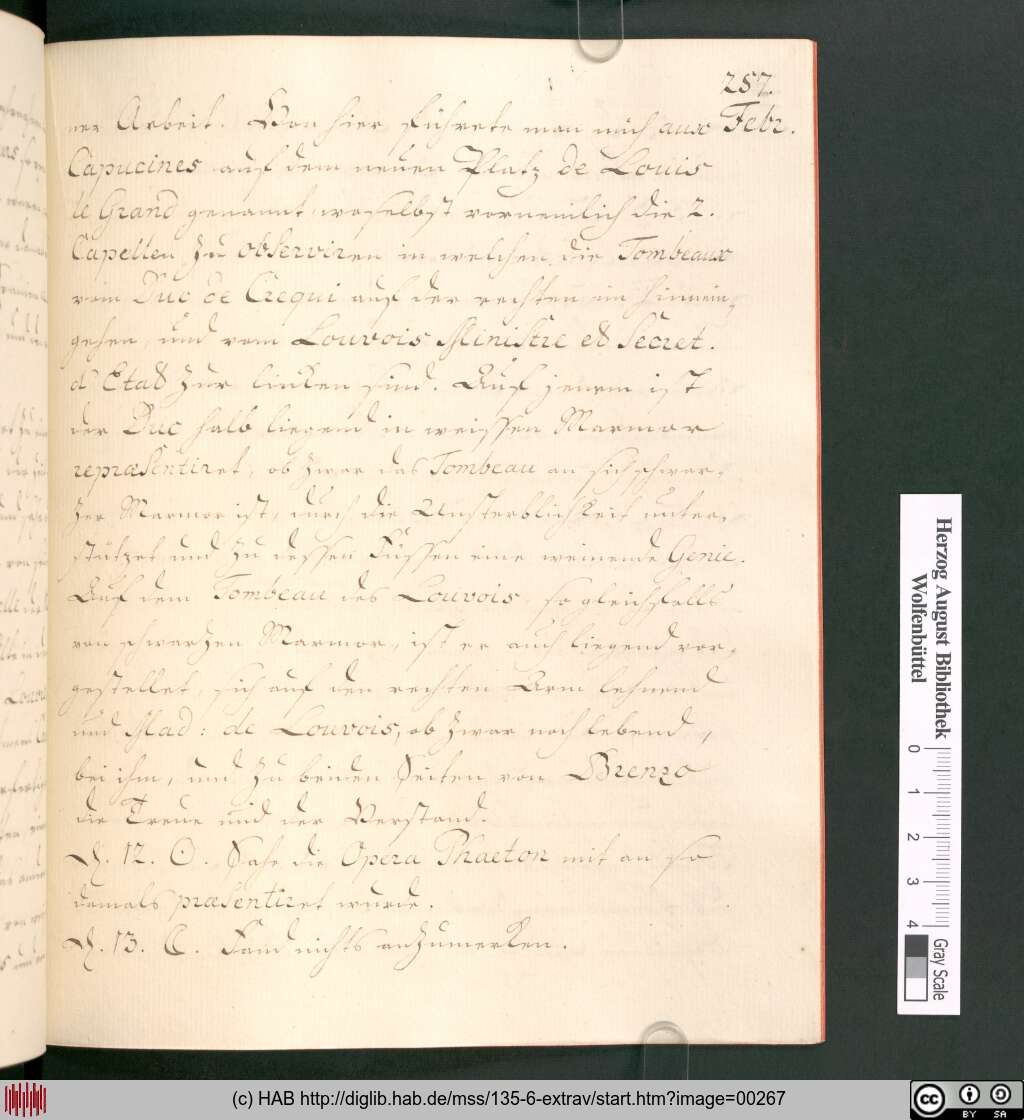 257.
Febr.
ner Arbeit. Von hier führete man mich aux
Capucines auf dem neuen Platz de Louis
le Grand genannt, woselbst vornemlich die 2.
Capellen zu observiren in welchen die Tombeaux
vom Duc de Crequi auf der rechten im hinnein-
gehen, und vom Louvois Ministre et Secret.
d'Etat zur lincken sind. Auf jenem ist
der Duc halb liegend in weissen Marmor
repræsentiret, ob zwar das Tombeau an sich schwar-
zer Marmor ist, durch die Unsterblichkeit unter-
stützet und zu dessen Füssen eine weinende Genie.
Auf dem Tombeau des Louvois, so gleichfalls
von schwarzen Marmor, ist er auch liegend vor-
gestellet, sich auf den rechten Arm lehnend
und Mad: de Louvois, ob zwar noch lebend,
bei ihm, und zu beiden Seiten von Brenzo
die Treue und der Verstand.
D. 12. ☉. Sahe die Opera Phaeton mit an so
damals præsentiret wurde.
D. 13. ☾. Fand nichts anzumerken.
Herzog August Bibliothek
Wolfenbüttel
0 1 2 3 4
Gray Scale
(c) HAB http://diglib.hab.de/mss/135-6-extrav/start.htm?image=00267
cc BY SA